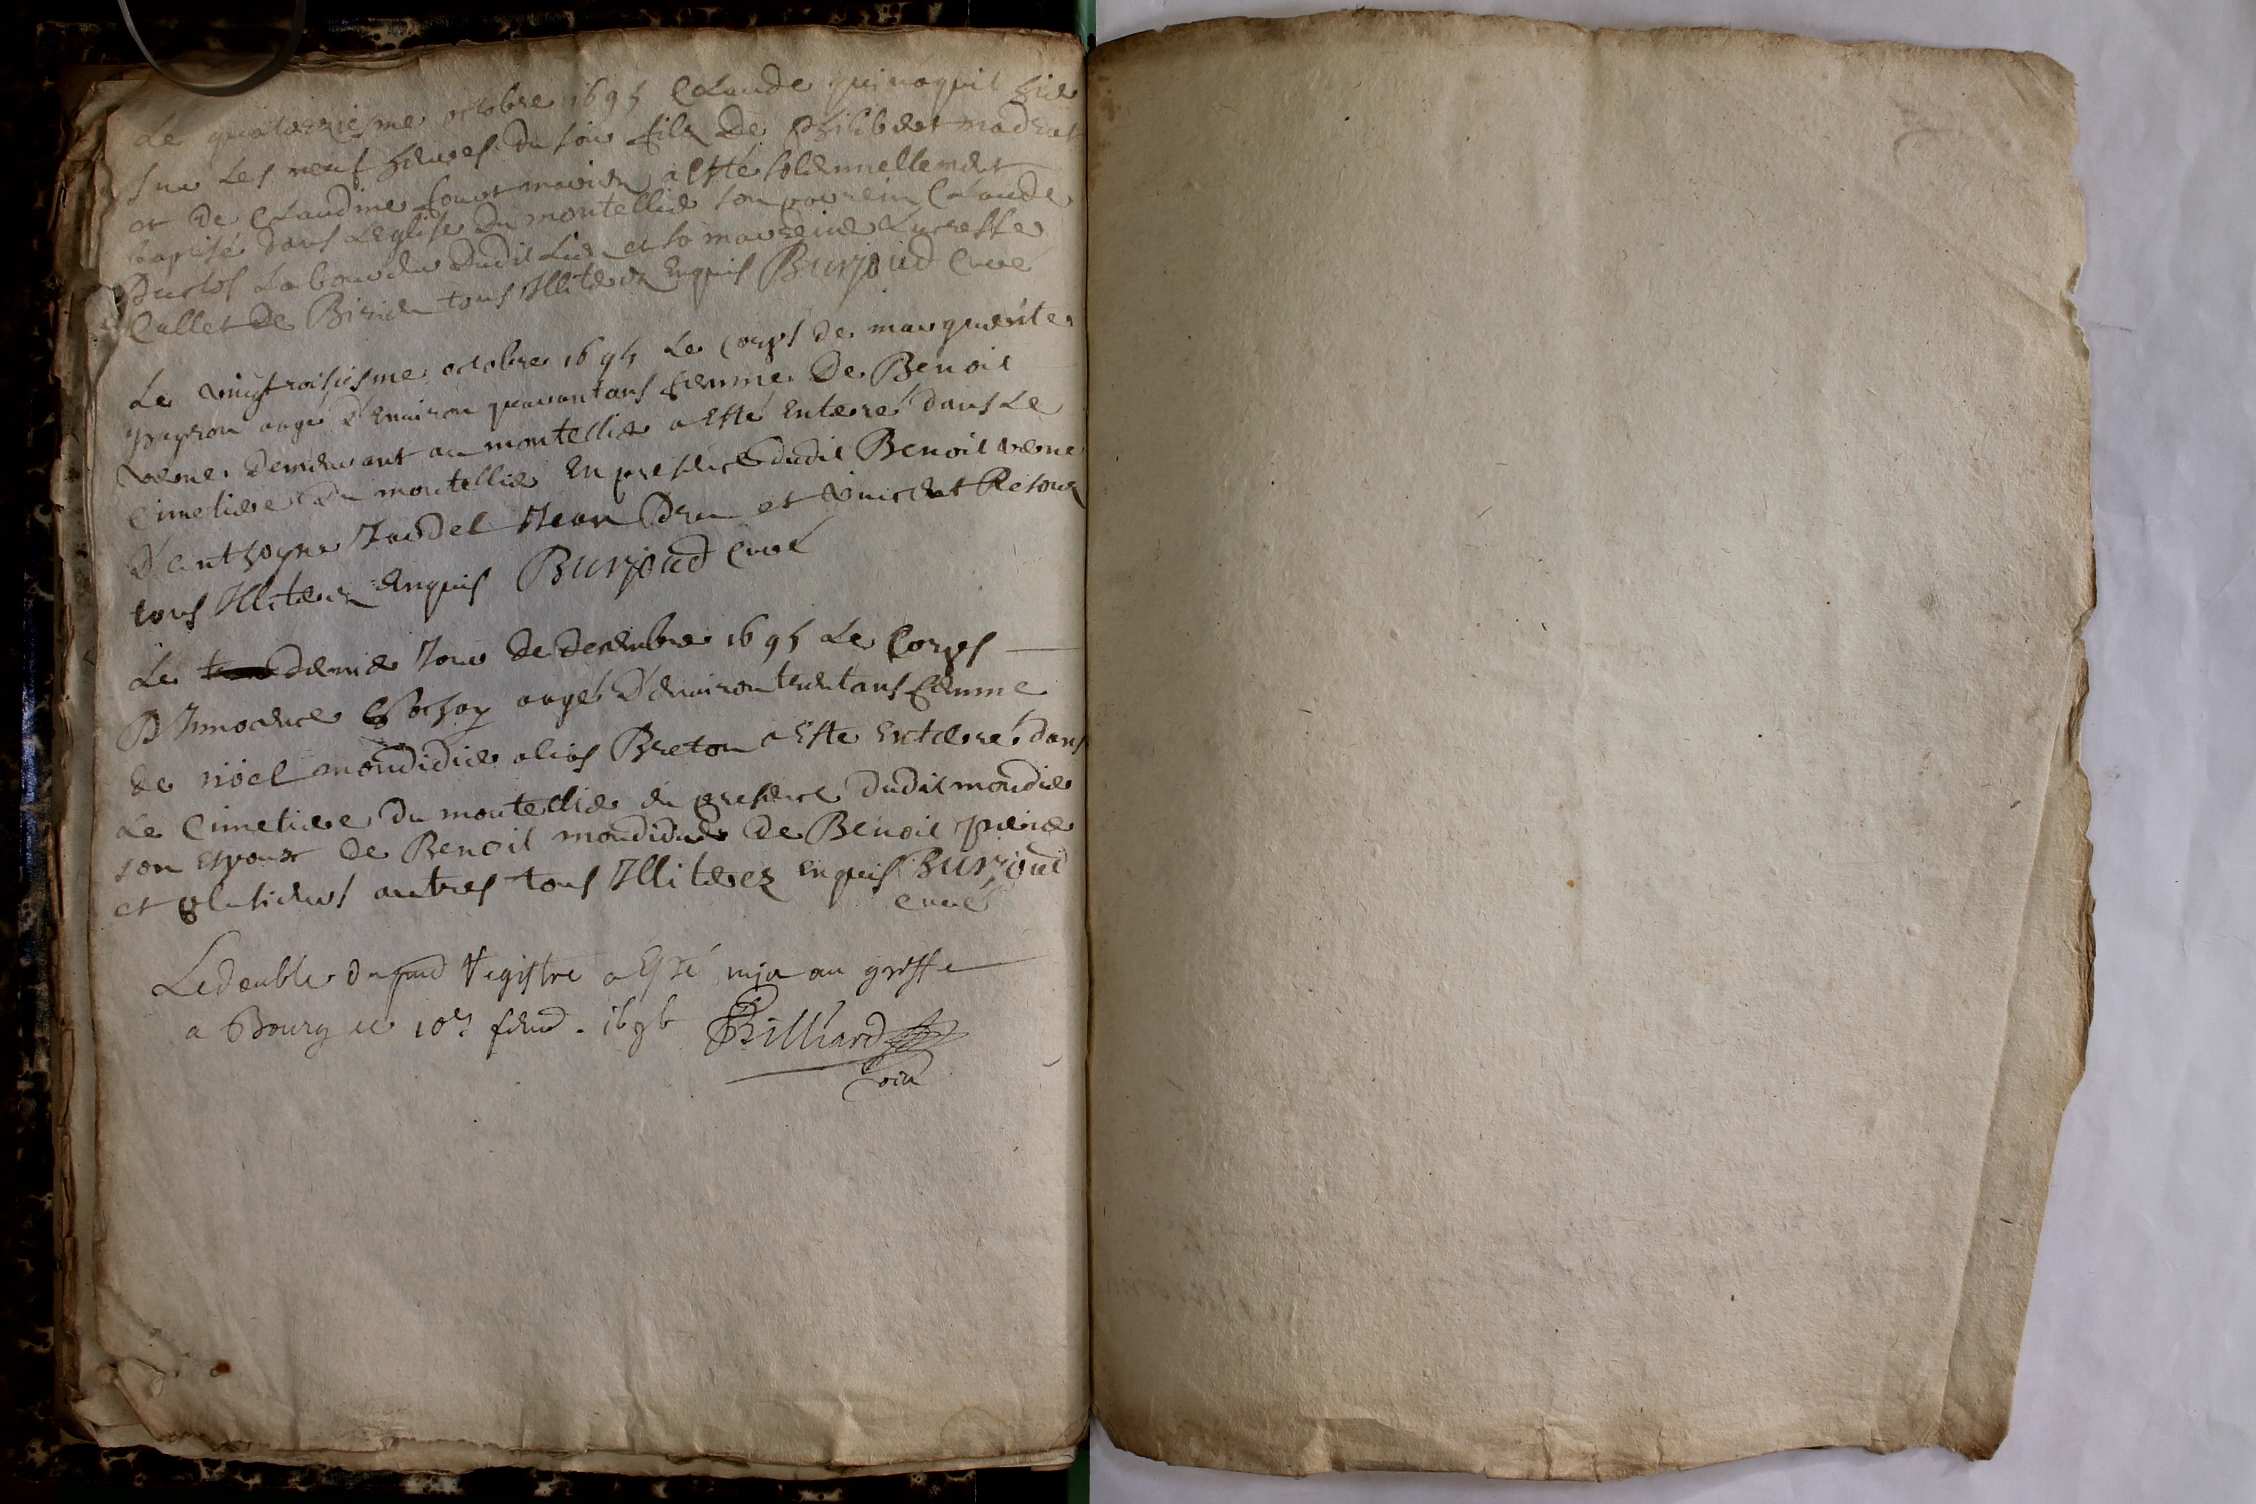 Le quatorziesme octobre 1695 Claude qui naquit hier
sur les neuf heures du soir fils de Philibert
et de Claudine a esté solennellement
baptisé dans L'eglise du montellier son parrein Claude
Duclos Laboureur dudit Lieu et sa marreine Lucresse
Callet de Birieu tous Illiterez Enquis Burjoud Curé
Le vingtroisiesme octobre 1695 Le Corps de marguerite
aagé d'Environ quarantans femme de Benoit
verne demeurant au montellier a Esté Enterré dans Le
Cimetiere du montellier En presence dudit Benoit verne
d'anthoyne Jean et vincent
tous Illiterez Enquis Burjoud Curé
Le dernier Jour de decembre 1695 Le Corps
D'Innocence aagé d'Environ trentans femme
de nöel mondidier alias Breton a Esté Enterré dans
Le Cimetiere du montellier en presence dudit mondidier
son Espoux de Benoit mondidier de Benoit
et plusieurs autres tous Illiterez Enquis Burjoud
Curé
Le double du registre a Esté mis au greffe
a Bourg ce 10e 1696 Billiard